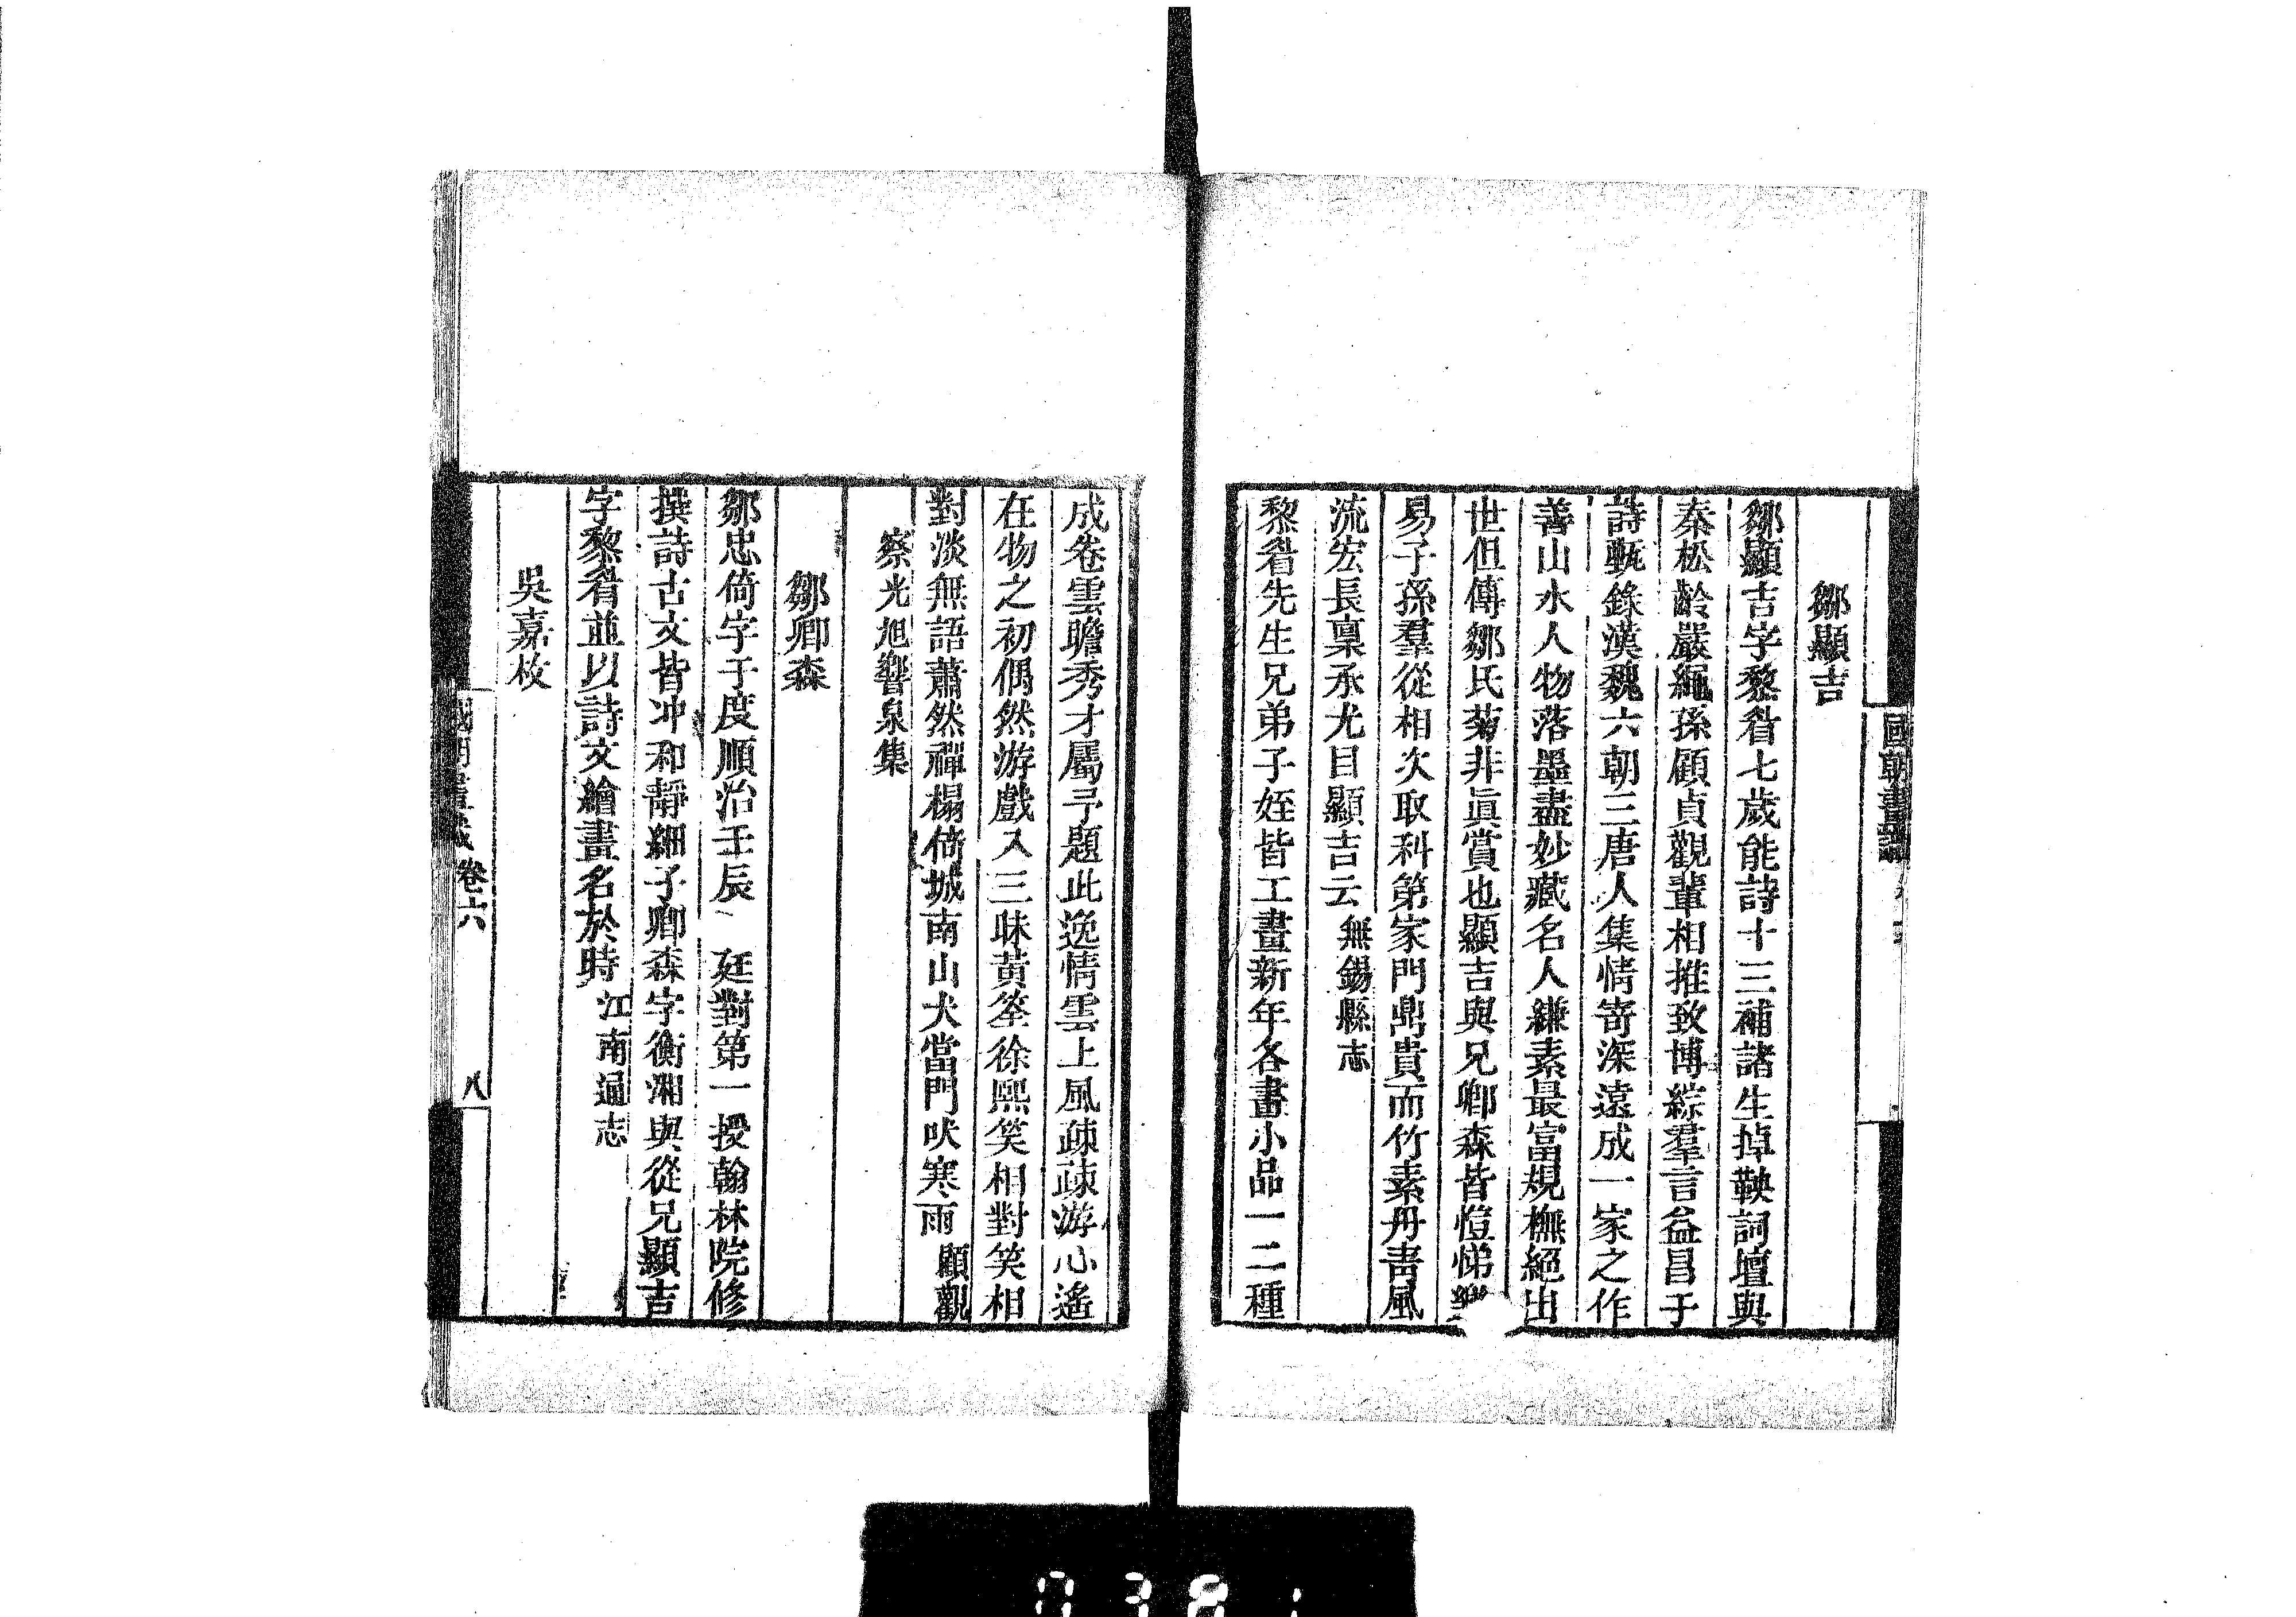 鄒顯吉
鄒顯吉字黎眷七歲能詩十三補諸生掉鞅詞壇與
秦松齡嚴繩孫顧貞觀輩相推致博綜羣言益昌于
詩甄錄漢魏六朝三唐人集情寄深遠成一家之作
善山水人物落墨盡妙藏名人縑素最富規橅絕出
世但傳鄒氏菊非眞賞也顯吉與兄卿森皆愷悌樂
易子孫羣從相次取科第家門鼎貴而竹素丹靑風
流宏長稟承尤目顯吉云 無錫縣志
黎眷先生兄弟子姪皆工畫新年各畫小品一二種
國朝畫識
成卷雲瞻秀才屬予題此逸情雲上風疎疎游心遙
在物之初偶然游戲入三昧黄筌徐熙笑相對笑相
對淡無語蕭然禪榻倚城南山犬當門吠寒雨 顧觀
察光旭響泉集
鄒卿森
鄒忠倚字于度順治壬辰 廷對第一授翰林院修
撰詩古文皆冲和靜細子卿森字衡湘與從兄顯吉
字黎眷並以詩文繪畫名於時 江南通志
吳嘉枚
國朝畫識 卷六 八
0381